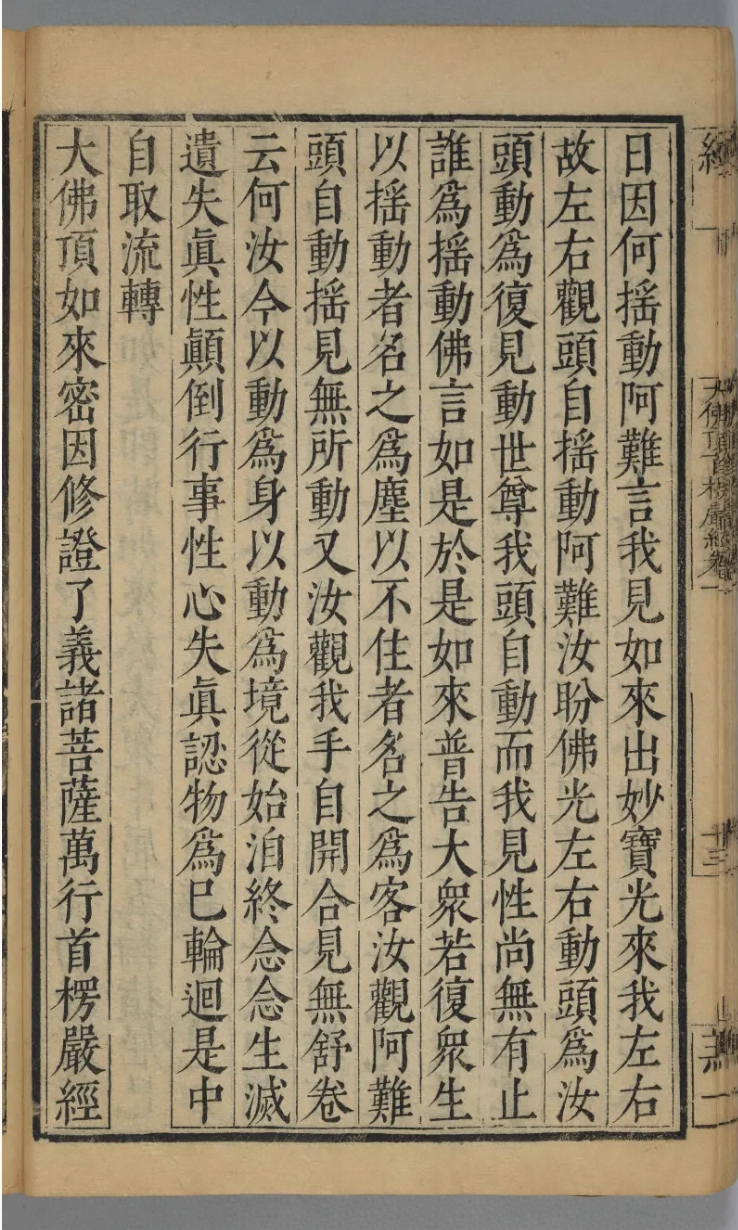 日因何揺動阿難言我見如來出妙寶光來我左右
故左右觀頭自揺動阿難汝盼佛光左右動頭爲汝
頭動爲復見動世尊我頭自動而我見性尚無有止
誰爲揺動佛言如是於是如來普告大衆若復衆生
以揺動者名之爲塵以不住者名之爲客汝觀阿難
頭自動揺見無所動又汝觀我手自開合見無舒卷
云何汝今以動爲身以動爲境從始洎終念念生滅
遺失眞性顚倒行事性心失眞認物爲已輪迴是中
自取流轉
大佛頂如來密因修證了義諸菩薩萬行首楞嚴經